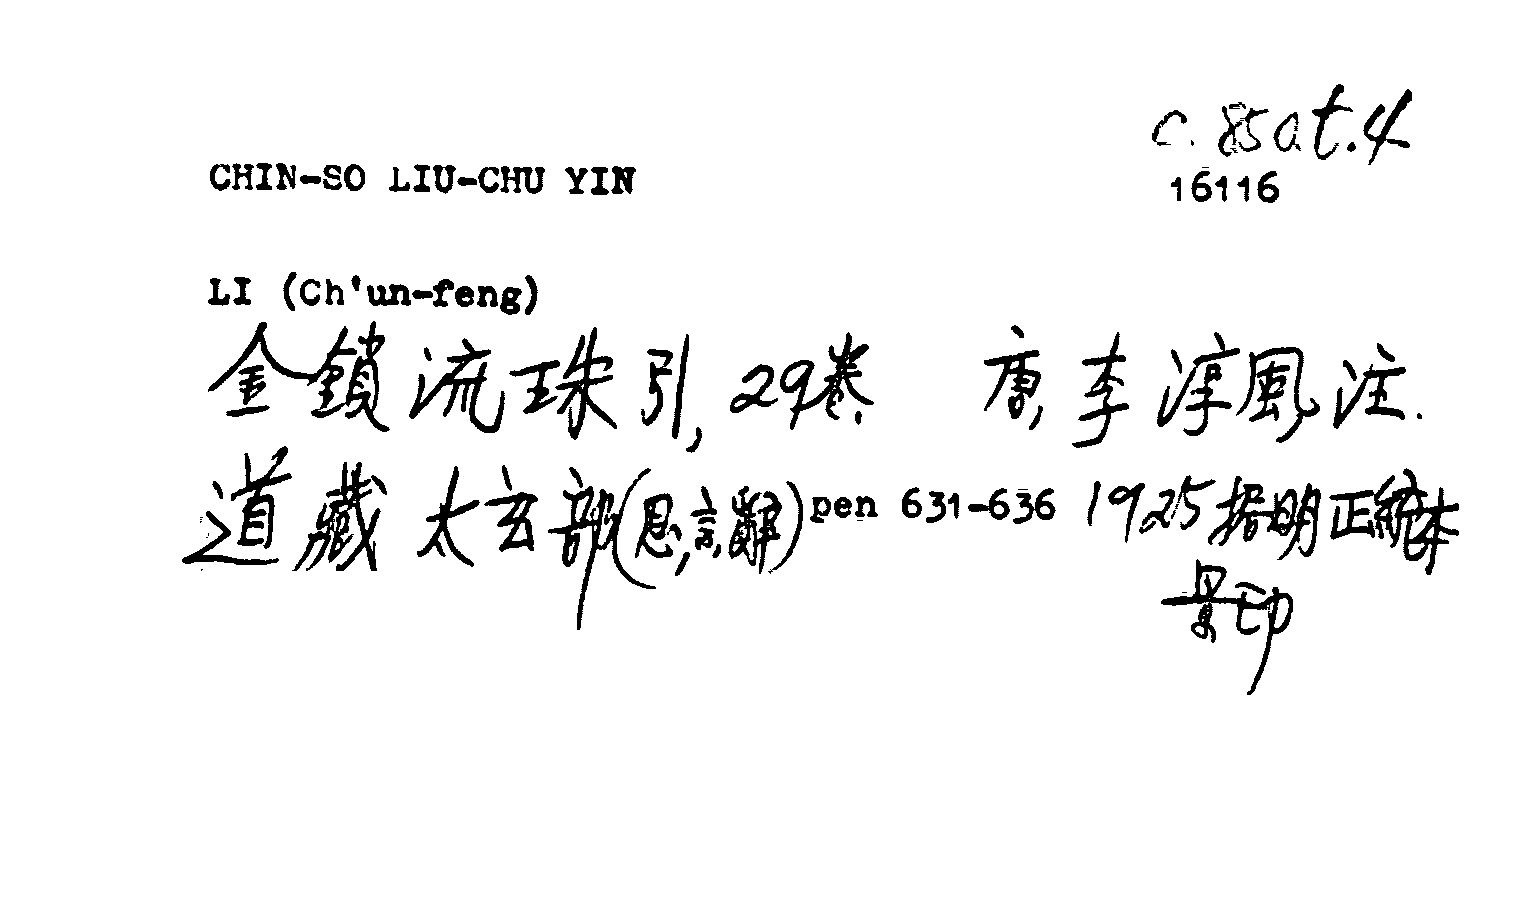 c.85a t.4
CHIN-SO LIU-CHU YIN
16116
LI (Ch'un-feng)
金鎖流珠引, 29卷. 唐, 李淳風注.
道藏 太玄部(思,言,辭) pen 631-636 1925 据明正統本
景印